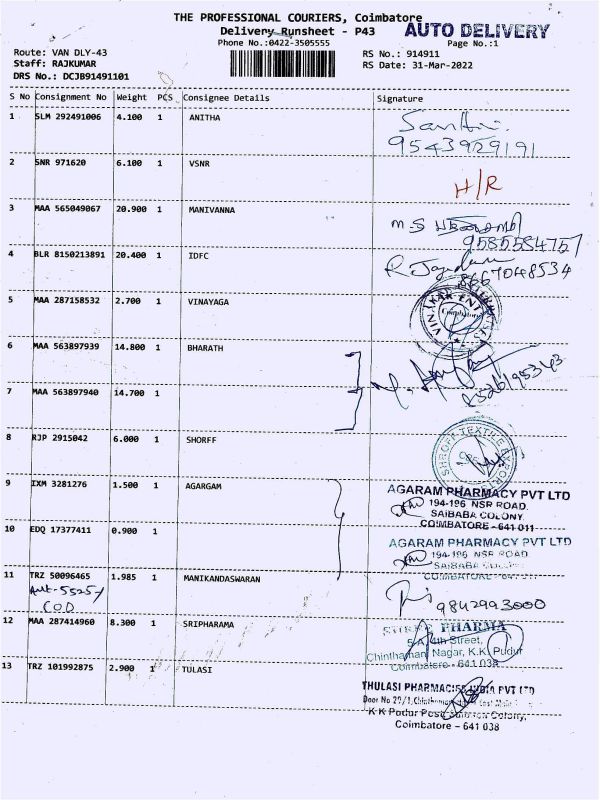 THE PROFESSIONAL COURIERS, Coimbatore
Delivery Runsheet - P43
AUTO DELIVERY
Phone No.:0422-3505555
Page No.:1
Route: VAN DLY-43
RS No.: 914911
Staff: RAJKUMAR
RS Date: 31-Mar-2022
DRS No.: DCJB91491101
S No Consignment No Weight PCS Consignee Details Signature
1 SLM 292491006 4.100 1 ANITHA
9543929191
2 SNR 971620 6.100 1 VSNR
H/R
3 MAA 565049067 20.900 1 MANIVANNA
M S
9585584757
4 BLR 8150213891 20.400 1 IDFC
8667048534
5 MAA 287158532 2.700 1 VINAYAGA
Coimbatore
6 MAA 563897939 14.800 1 BHARATH
7 MAA 563897940 14.700 1
8 RJP 2915042 6.000 1 SHORFF
SHROFF TEXTILE EXPORT
9 IXM 3281276 1.500 1 AGARGAM
AGARAM PHARMACY PVT LTD
194-196 NSR ROAD.
SAIBABA COLONY.
COIMBATORE - 641 011
10 EDQ 17377411 0.900 1
AGARAM PHARMACY PVT LTD
194-196 NSR ROAD
SAIBABA COLONY
COIMBATORE - 641 011
11 TRZ 50096465 1.985 1 MANIKANDASWARAN
Amt-5525/
COD
9842993000
12 MAA 287414960 8.300 1 SRIPHARAMA
PHARMA
5-A, 4th Street,
Chinthamani Nagar, K.K. Pudur
Coimbatore - 641 038
13 TRZ 101992875 2.900 1 TULASI
THULASI PHARMACIES INDIA PVT LTD
Door No
K K Pudur Post Saibaba Colony,
Coimbatore - 641 038